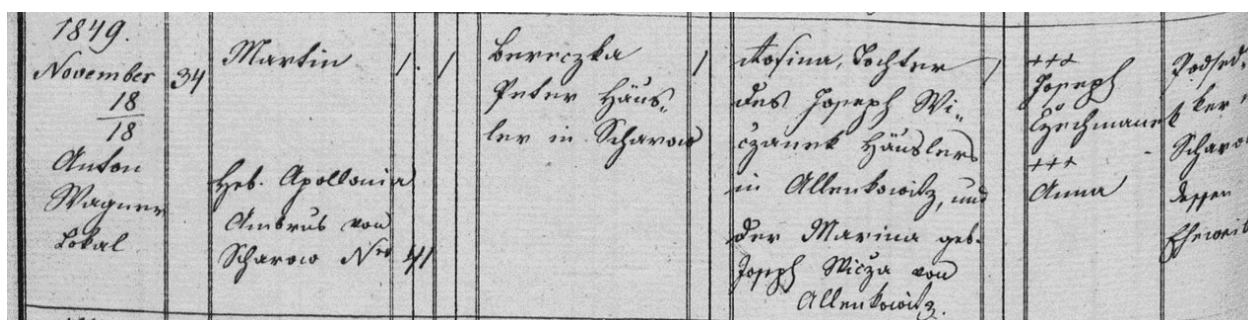 1849.
November
18
18
Anton
Wagner
Lokal
34
Martin
Heb. Apollonia
Ambrus von
Scharow Nro 41
1. 1
Bereczka
Peter Häus-
ler in Scharow
1
Rosina, Tochter
des Joseph Wi-
czanek Häuslers
in Allenkowitz, und
der Marina geb.
Joseph Wicza von
Allenkowitz.
1
+++
Joseph
Czechmanek
+++
Anna
Podsed-
ker
Scharow
dessen
Eheweib